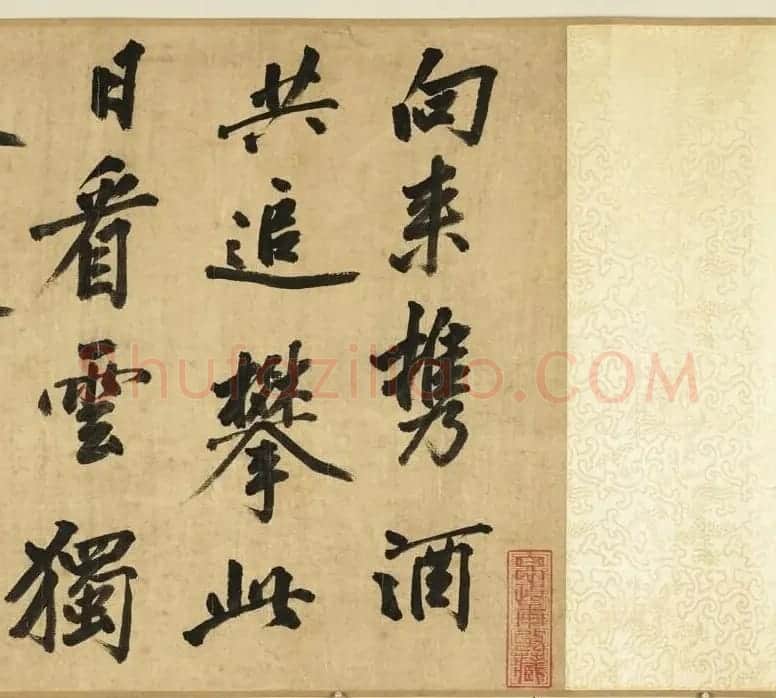 向来携酒
共追攀此
日看雲獨
Shufaziliao.COM